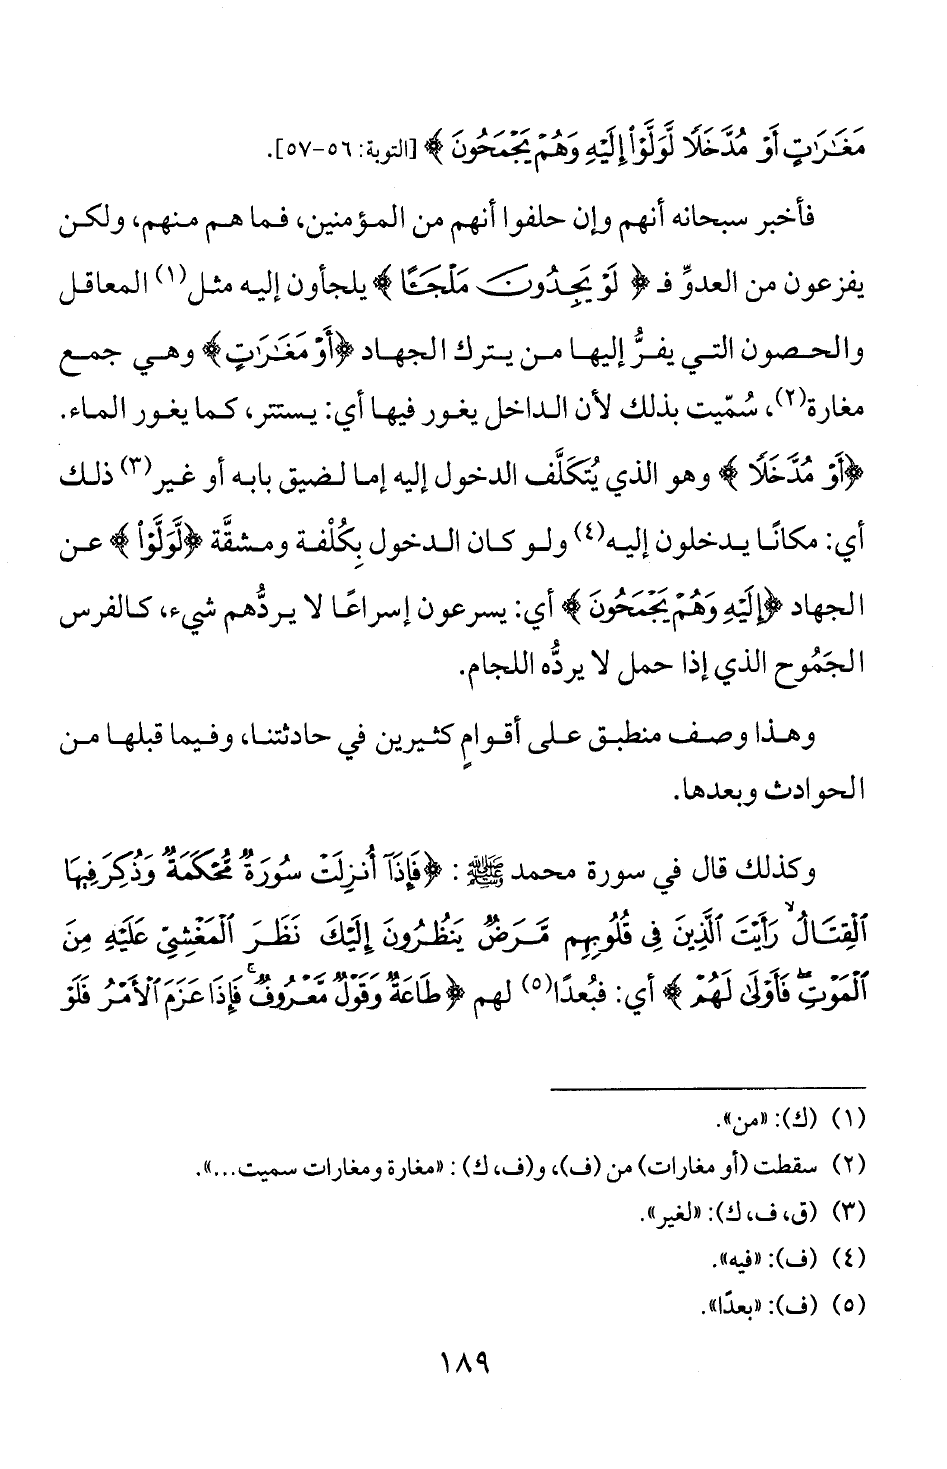 مَغَٰرَٰتٍ أَوْ مُدَّخَلًا لَّوَلَّوْا۟ إِلَيْهِ وَهُمْ يَجْمَحُونَ ﴾ [التوبة: ٥٦-٥٧].
فأخبر سبحانه أنهم وإن حلفوا أنهم من المؤمنين، فما هم منهم، ولكن
يفزعون من العدوِّ فـ ﴿ لَوْ يَجِدُونَ مَلْجَـًٔا ﴾ يلجأون إليه مثل(١) المعاقل
والحصون التي يفرُّ إليها من يترك الجهاد ﴿أَوْ مَغَٰرَٰتٍ﴾ وهي جمع
مغارة(٢)، سُمّيت بذلك لأن الداخل يغور فيها أي: يستتر، كما يغور الماء.
﴿أَوْ مُدَّخَلًا ﴾ وهو الذي يُتَكلَّف الدخول إليه إما لضيق بابه أو غير(٣) ذلك
أي: مكانًا يدخلون إليه(٤) ولو كان الدخول بِكُلْفة ومشقَّة ﴿لَّوَلَّوْا۟ ﴾ عن
الجهاد ﴿إِلَيْهِ وَهُمْ يَجْمَحُونَ ﴾ أي: يسرعون إسراعًا لا يردُّهم شيء، كالفرس
الجَمُوح الذي إذا حمل لا يردُّه اللجام.
وهذا وصف منطبق على أقوامٍ كثيرين في حادثتنا، وفيما قبلها من
الحوادث وبعدها.
وكذلك قال في سورة محمد ﷺ : ﴿فَإِذَآ أُنزِلَتْ سُورَةٌ مُّحْكَمَةٌ وَذُكِرَ فِيهَا
ٱلْقِتَالُ ۙ رَأَيْتَ ٱلَّذِينَ فِى قُلُوبِهِم مَّرَضٌ يَنظُرُونَ إِلَيْكَ نَظَرَ ٱلْمَغْشِىِّ عَلَيْهِ مِنَ
ٱلْمَوْتِ ۖ فَأَوْلَىٰ لَهُمْ ﴾ أي: فبُعدًا(٥) لهم ﴿ طَاعَةٌ وَقَوْلٌ مَّعْرُوفٌ ۚ فَإِذَا عَزَمَ ٱلْأَمْرُ فَلَوْ
(١) (ك): «من».
(٢) سقطت (أو مغارات) من (ف)، و(ف، ك) : «مغارة ومغارات سميت...».
(٣) (ق، ف، ك): «لغير».
(٤) (ف): «فيه».
(٥) (ف): «بعدًا».
١٨٩